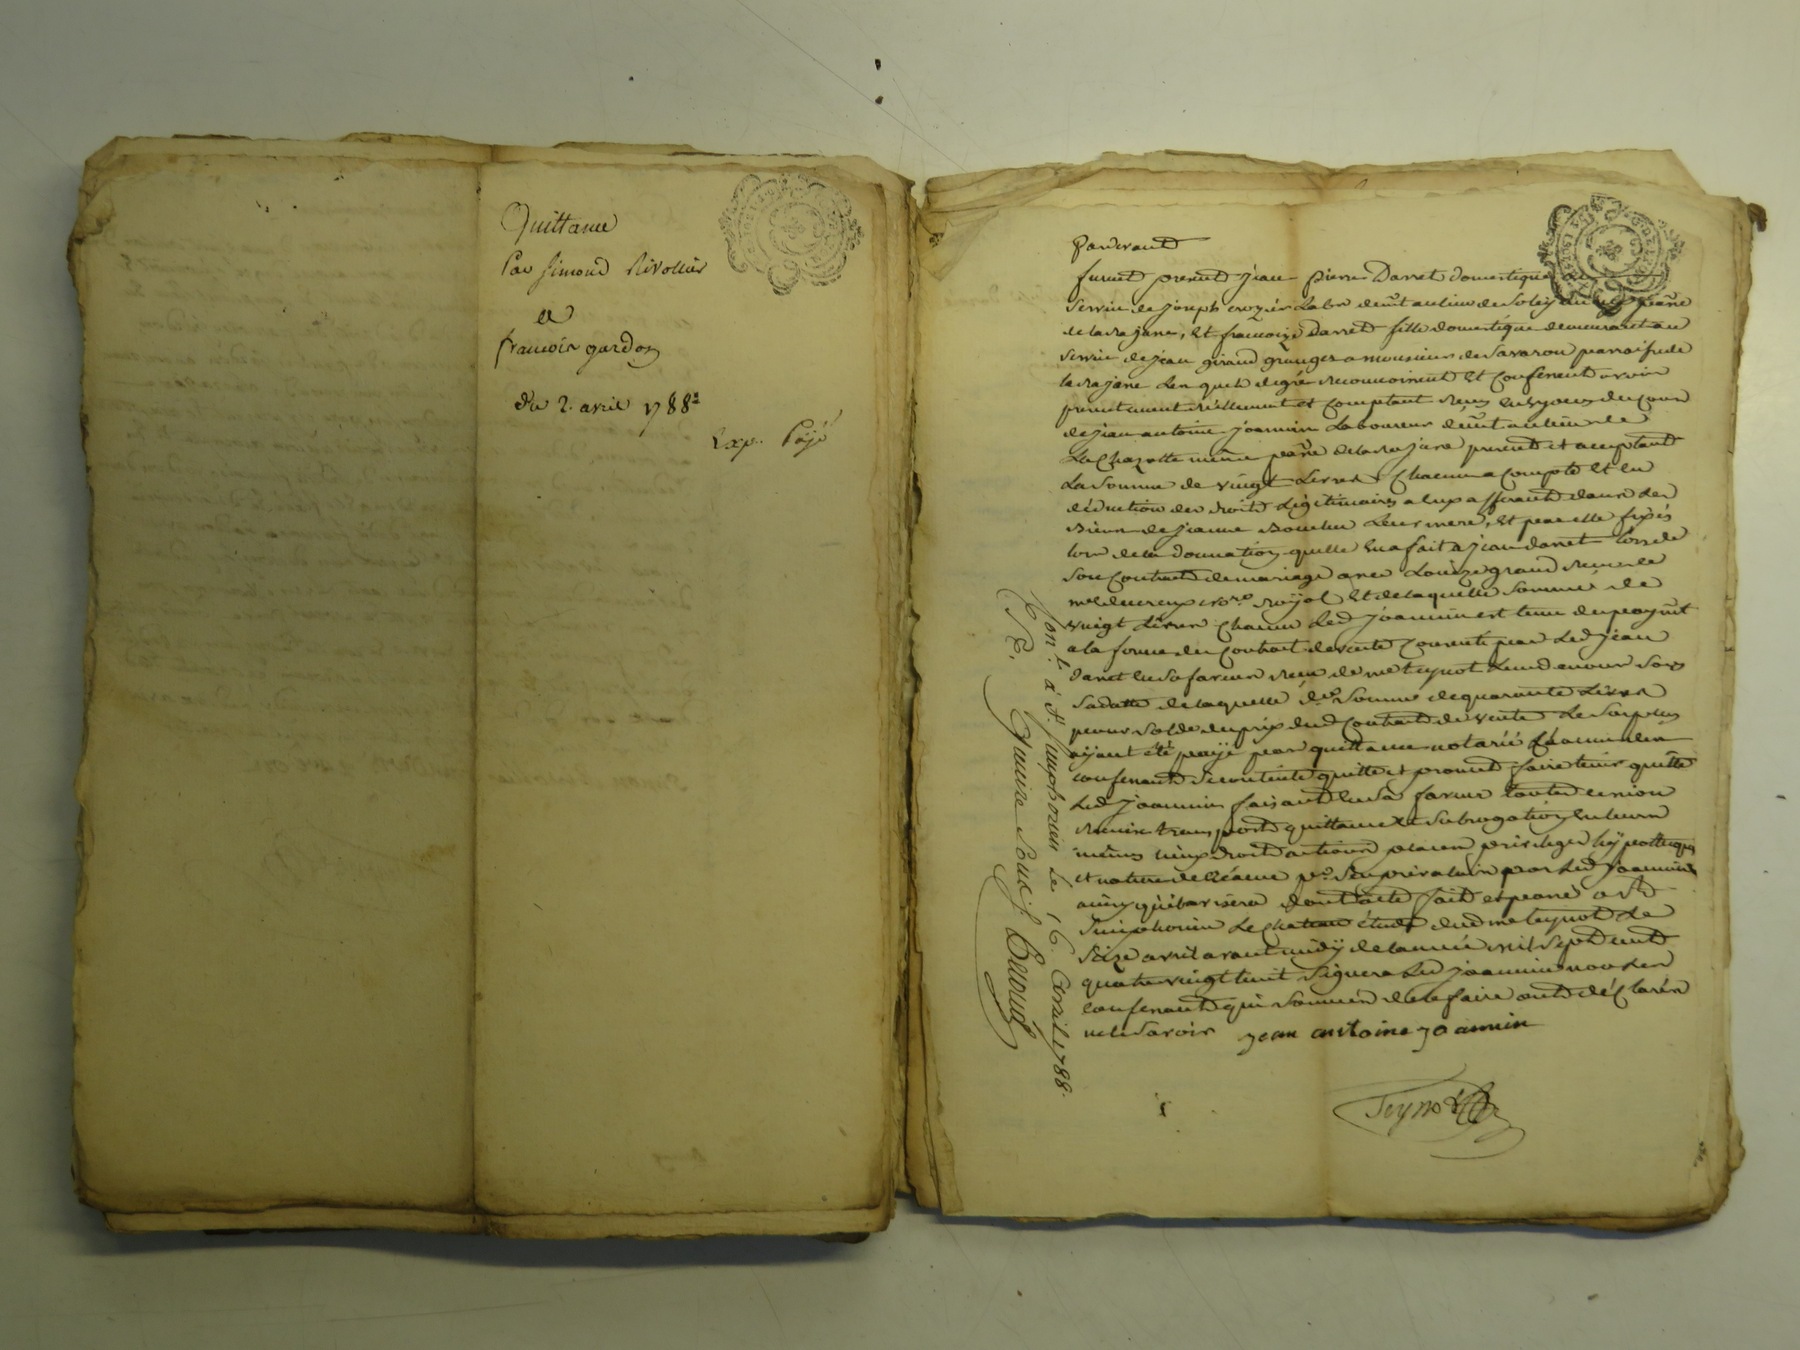 Quittance
Par Simond Rivollier
a
francois gardon
du 2. avril 1788
Exp. Payé
Pardevant
furent present jean pierre Darret domestique
service de joseph crozier Lab.r deûrt au lieu de Soleymieu par.sse
de la rajane, Et francoize Darret fille domestique demeurant au
service de jean giraud granger a monsieur de Savaron parroisse de
la rajane Lesquels de gré reconnoissent Et confessent avoir
presentement réellement et comptant reçus
de jean antoine joannin Laboureur deûrt au lieu de
La Chazotte même par.sse de la rajane present et acceptant
La somme de vingt Livres Chacun a compte Et en
déduction des droits Légitimaires a eux afferants dans Les
Biens de jeanne Bouchu Leur mere, Et par elle fixés
lors de la donnation quelle en a fait a jean darret lors de
son Contract de mariage avec Louize giraud reçu de
me no.re royal Et de laquelle somme de
vingt Livres Chacun Led. joannin est tenu du payemt
a la forme du Contract de vente Consenti par Led. jean
darret en sa faveur reçu de me teynot
sa datte de laquelle de. somme de quarante Livres
pour solde du prix dud. Contract de vente Le surplus
ayant été payé par quittance notarié
confessants se contente quitte et promet faire tenir quitte
Led. joannin faisant en sa faveur toutte cession
remise transport quittance Et Subrogation en leurs
mêmes lieux droits actions places privileges hypotteques
et nature de Créance pr. s'en prévaloir par Led. joannin
ainsy qu'il avisera dont acte fait et passé a St.
Simphorien Le Chateau étude dud. me teynot Le
Seize avril avant midy de l'année mil sept cent
quatre vingt huit Signera Led. joannin non Les
confessants qui sommés de le faire ont déclarés
ne le savoir jean antoine joannin
Teynot
Con.lé à St. Simphorien Le 16 Avril 1788.
Quinze Sous